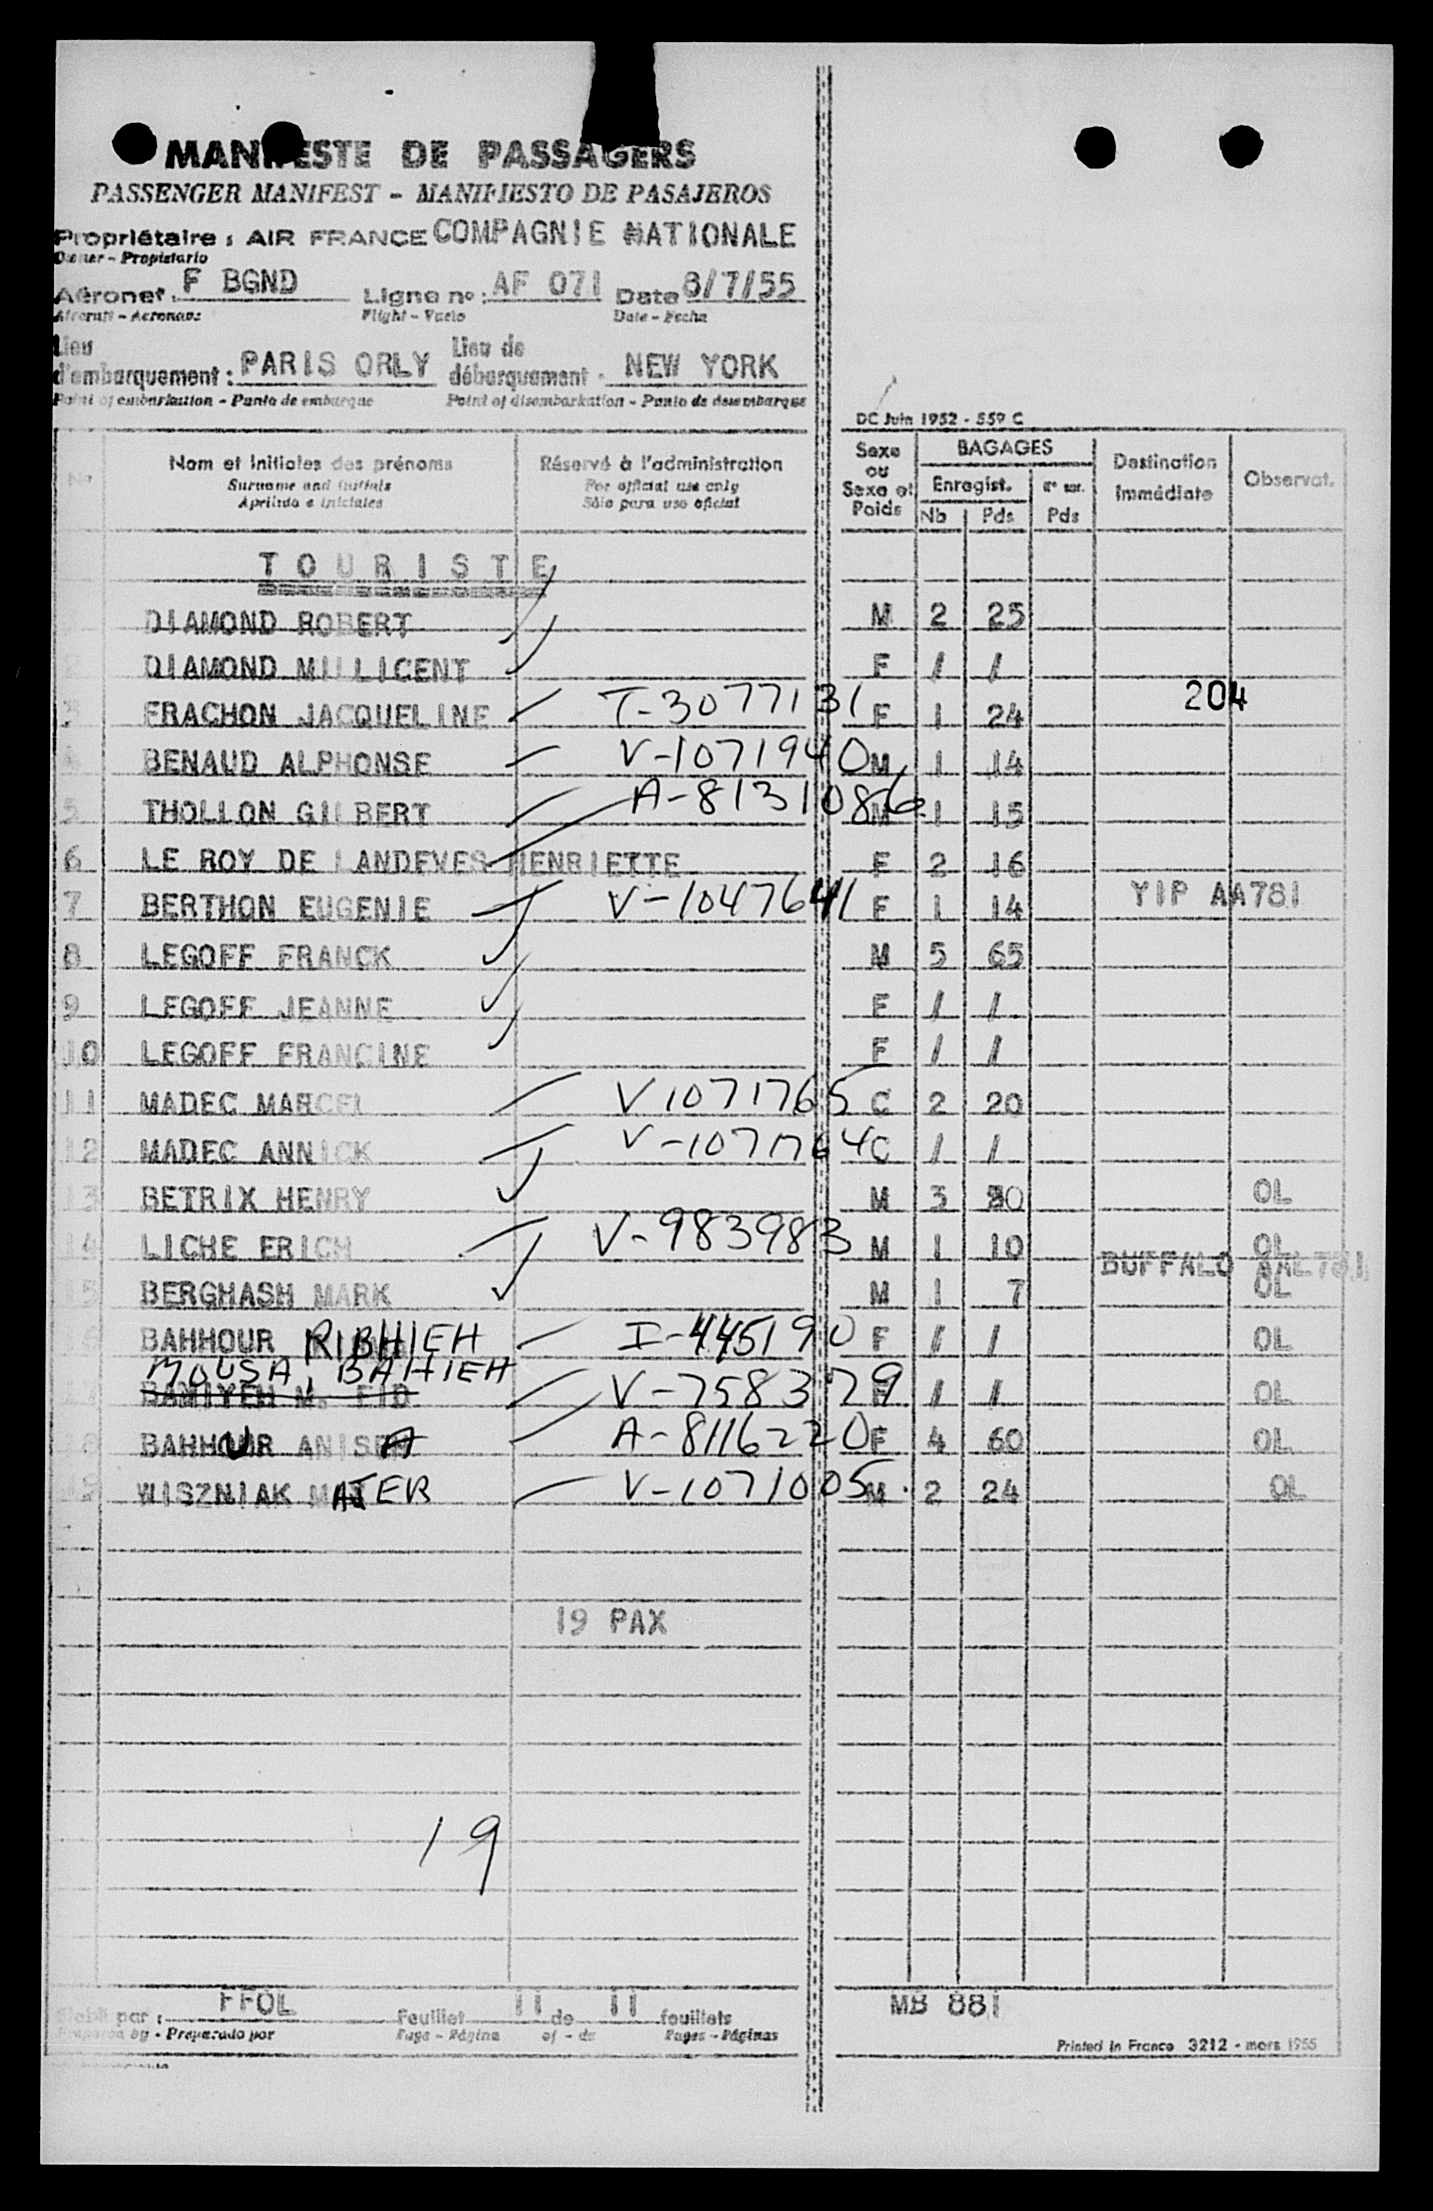 MANIFESTE DE PASSAGERS
PASSENGER MANIFEST - MANIFIESTO DE PASAJEROS
Propriétaire : AIR FRANCE COMPAGNIE NATIONALE
Owner - Propietario
Aéronef : F BGND Ligne no : AF 071 Date 8/7/55
Aircraft - Aeronave Flight - Vuelo Date - Fecha
Lieu d'embarquement : PARIS ORLY Lieu de débarquement - NEW YORK
Point of embarkation - Punto de embarque Point of disembarkation - Punto de desembarque
DC Juin 1952 - 559 C
No Nom et initiales des prénoms Réservé à l'administration Sexe ou Sexe et Poids BAGAGES Destination immédiate Observat.
Surname and initials For official use only Enregist.
Apellido e iniciales Sólo para uso oficial Nb Pds Pds
TOURISTE
DIAMOND ROBERT M 2 25
2 DIAMOND MILLICENT F / /
3 FRACHON JACQUELINE T-3077131 F 1 24 204
4 BENAUD ALPHONSE V-1071940 M 1 14
5 THOLLON GILBERT A-81310856 M 1 15
6 LE ROY DE LANDEVES HENRIETTE F 2 16
7 BERTHON EUGENIE V-1047641 F 1 14 YIP AA781
8 LEGOFF FRANCK M 5 65
9 LEGOFF JEANNE F / /
10 LEGOFF FRANCINE F / /
11 MADEC MARCEL V1071765 C 2 20
12 MADEC ANNICK V-1071764 C / /
13 BETRIX HENRY M 3 30 OL
14 LICHE ERICH V-983983 M 1 10 OL
BUFFALO AAL781
15 BERGHASH MARK M 1 7 OL
16 BAHHOUR RIBHIEH I-445190 F / / OL
MOUSA, BAHIEH
17 BAMIYEH M. EID V-758379 F / / OL
18 BAHHUR ANISA A-8116220 F 4 60 OL
19 WISZNIAK MAJER V-1071005 M 2 24 OL
19 PAX
19
Etabli par : FFOL Feuillet 11 de 11 feuillets MB 881
Prepared by - Preparado por Page - Página of - de Pages - Páginas
Printed in France 3212 - mars 1955